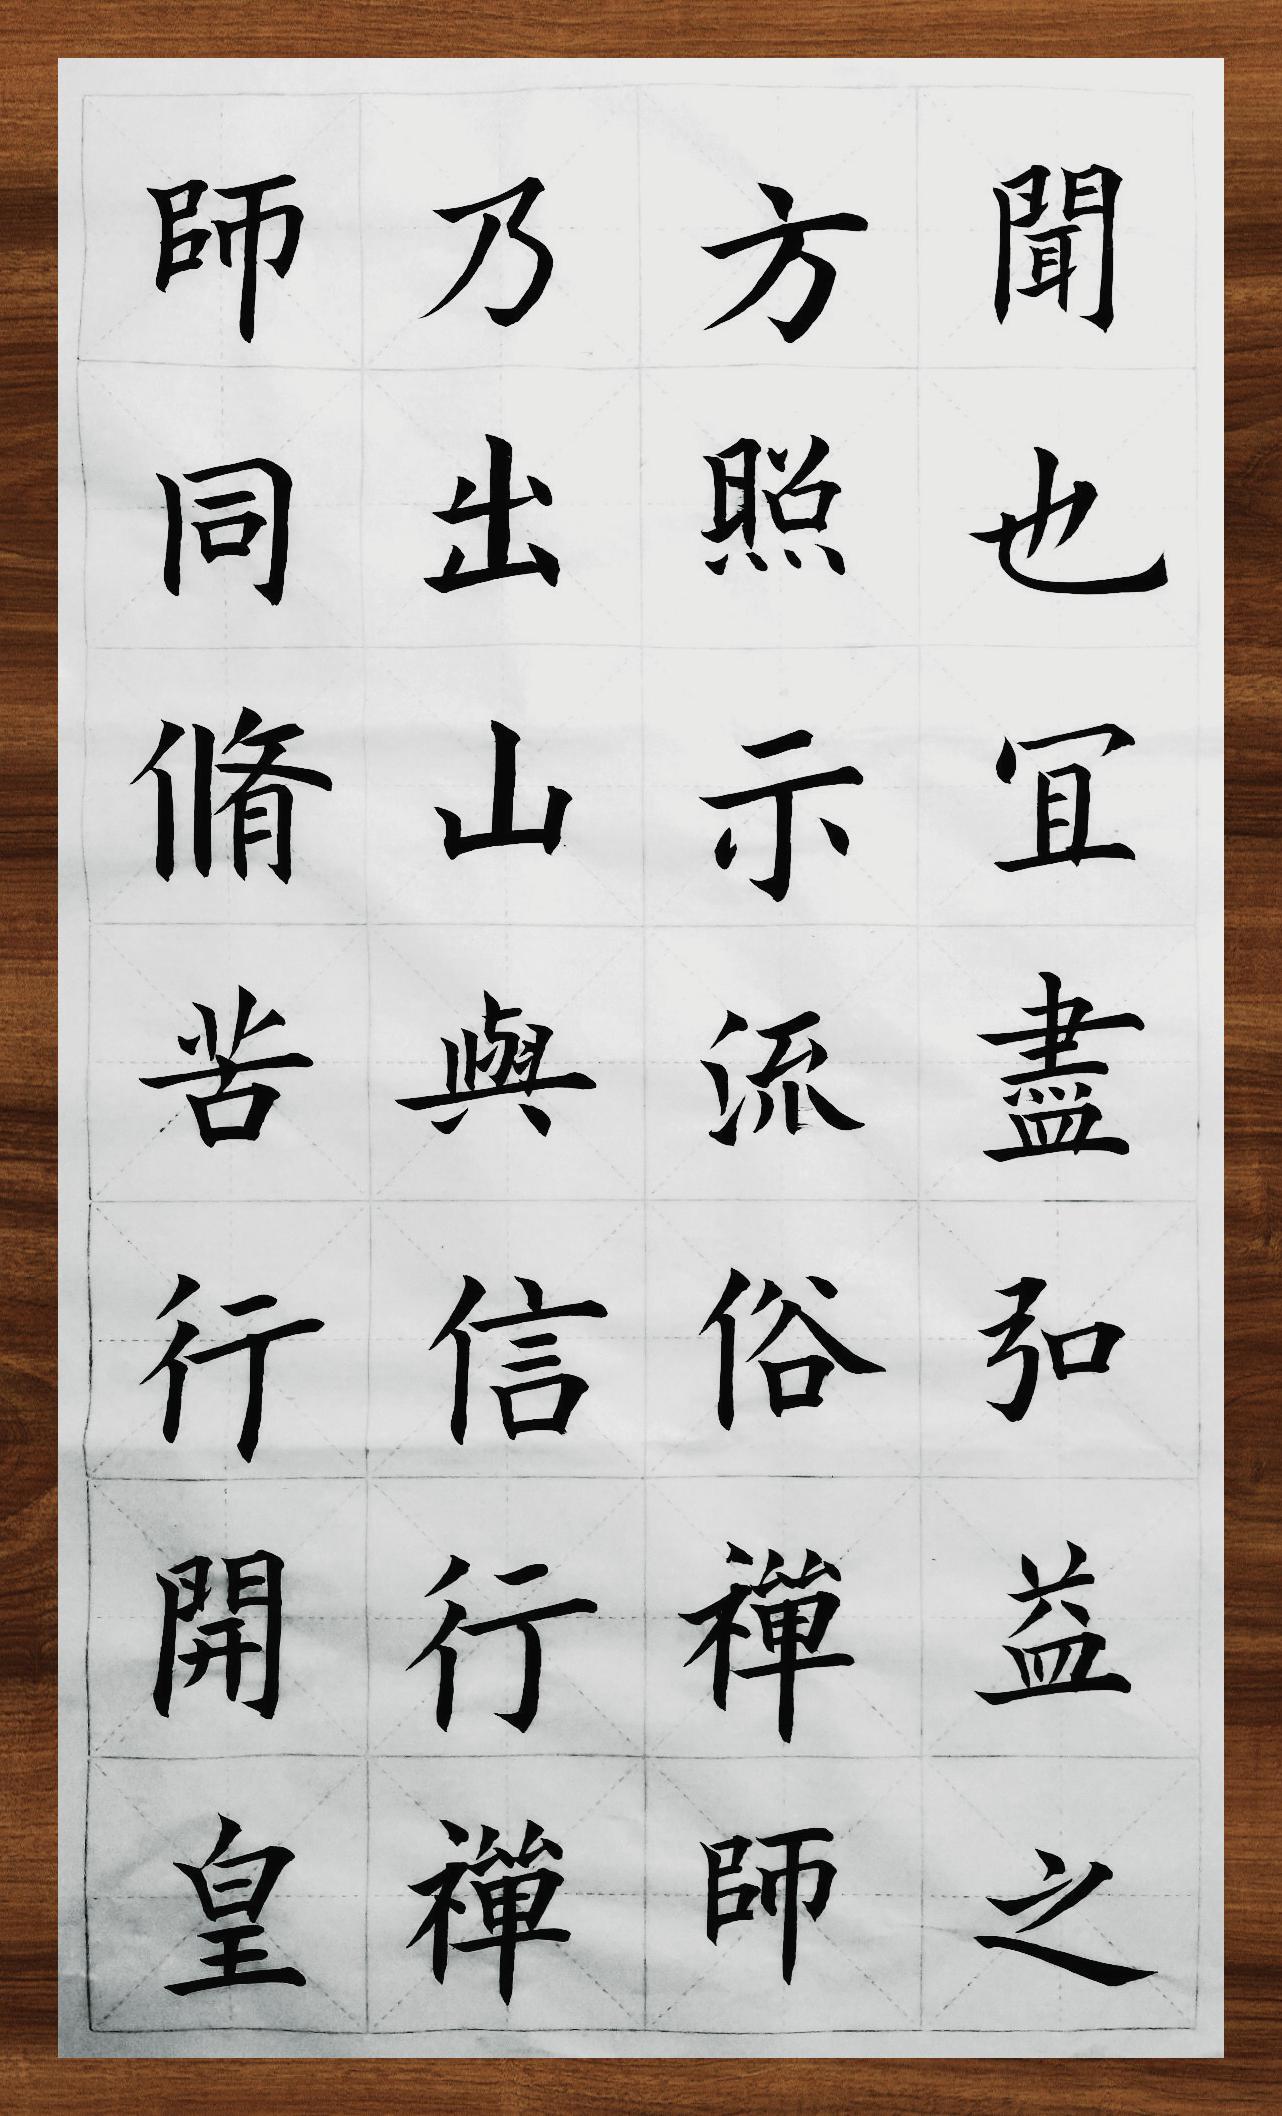 聞也冝盡弘益之
方照示流俗禪師
乃出山與信行禪
師同脩苦行開皇